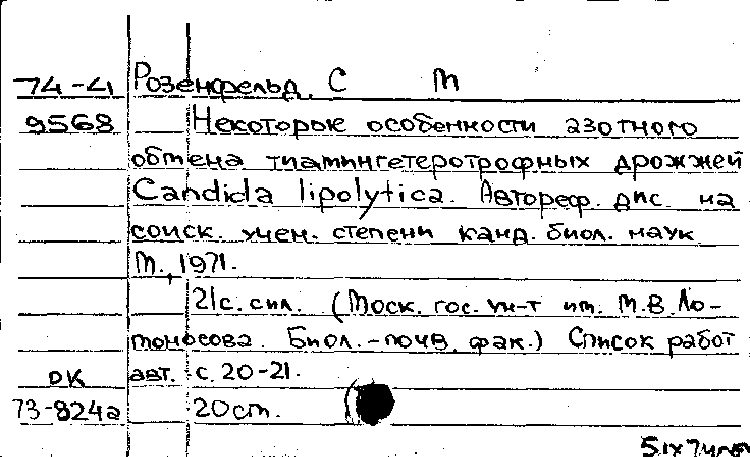 74-41 Розенфельд, С М
9568 Некоторые особенности азотного
обмена тиамингетеротрофных дрожжей
Candida lipolytica. Автореф. дис. на
соиск. учен. степени канд. биол. наук
М., 1971.
21с. сил. (Моск. гос. ун-т им. М.В. Ло-
моносова. Биол.-почв. фак.) Список работ
DK авт. с. 20-21.
73-824а 20см.